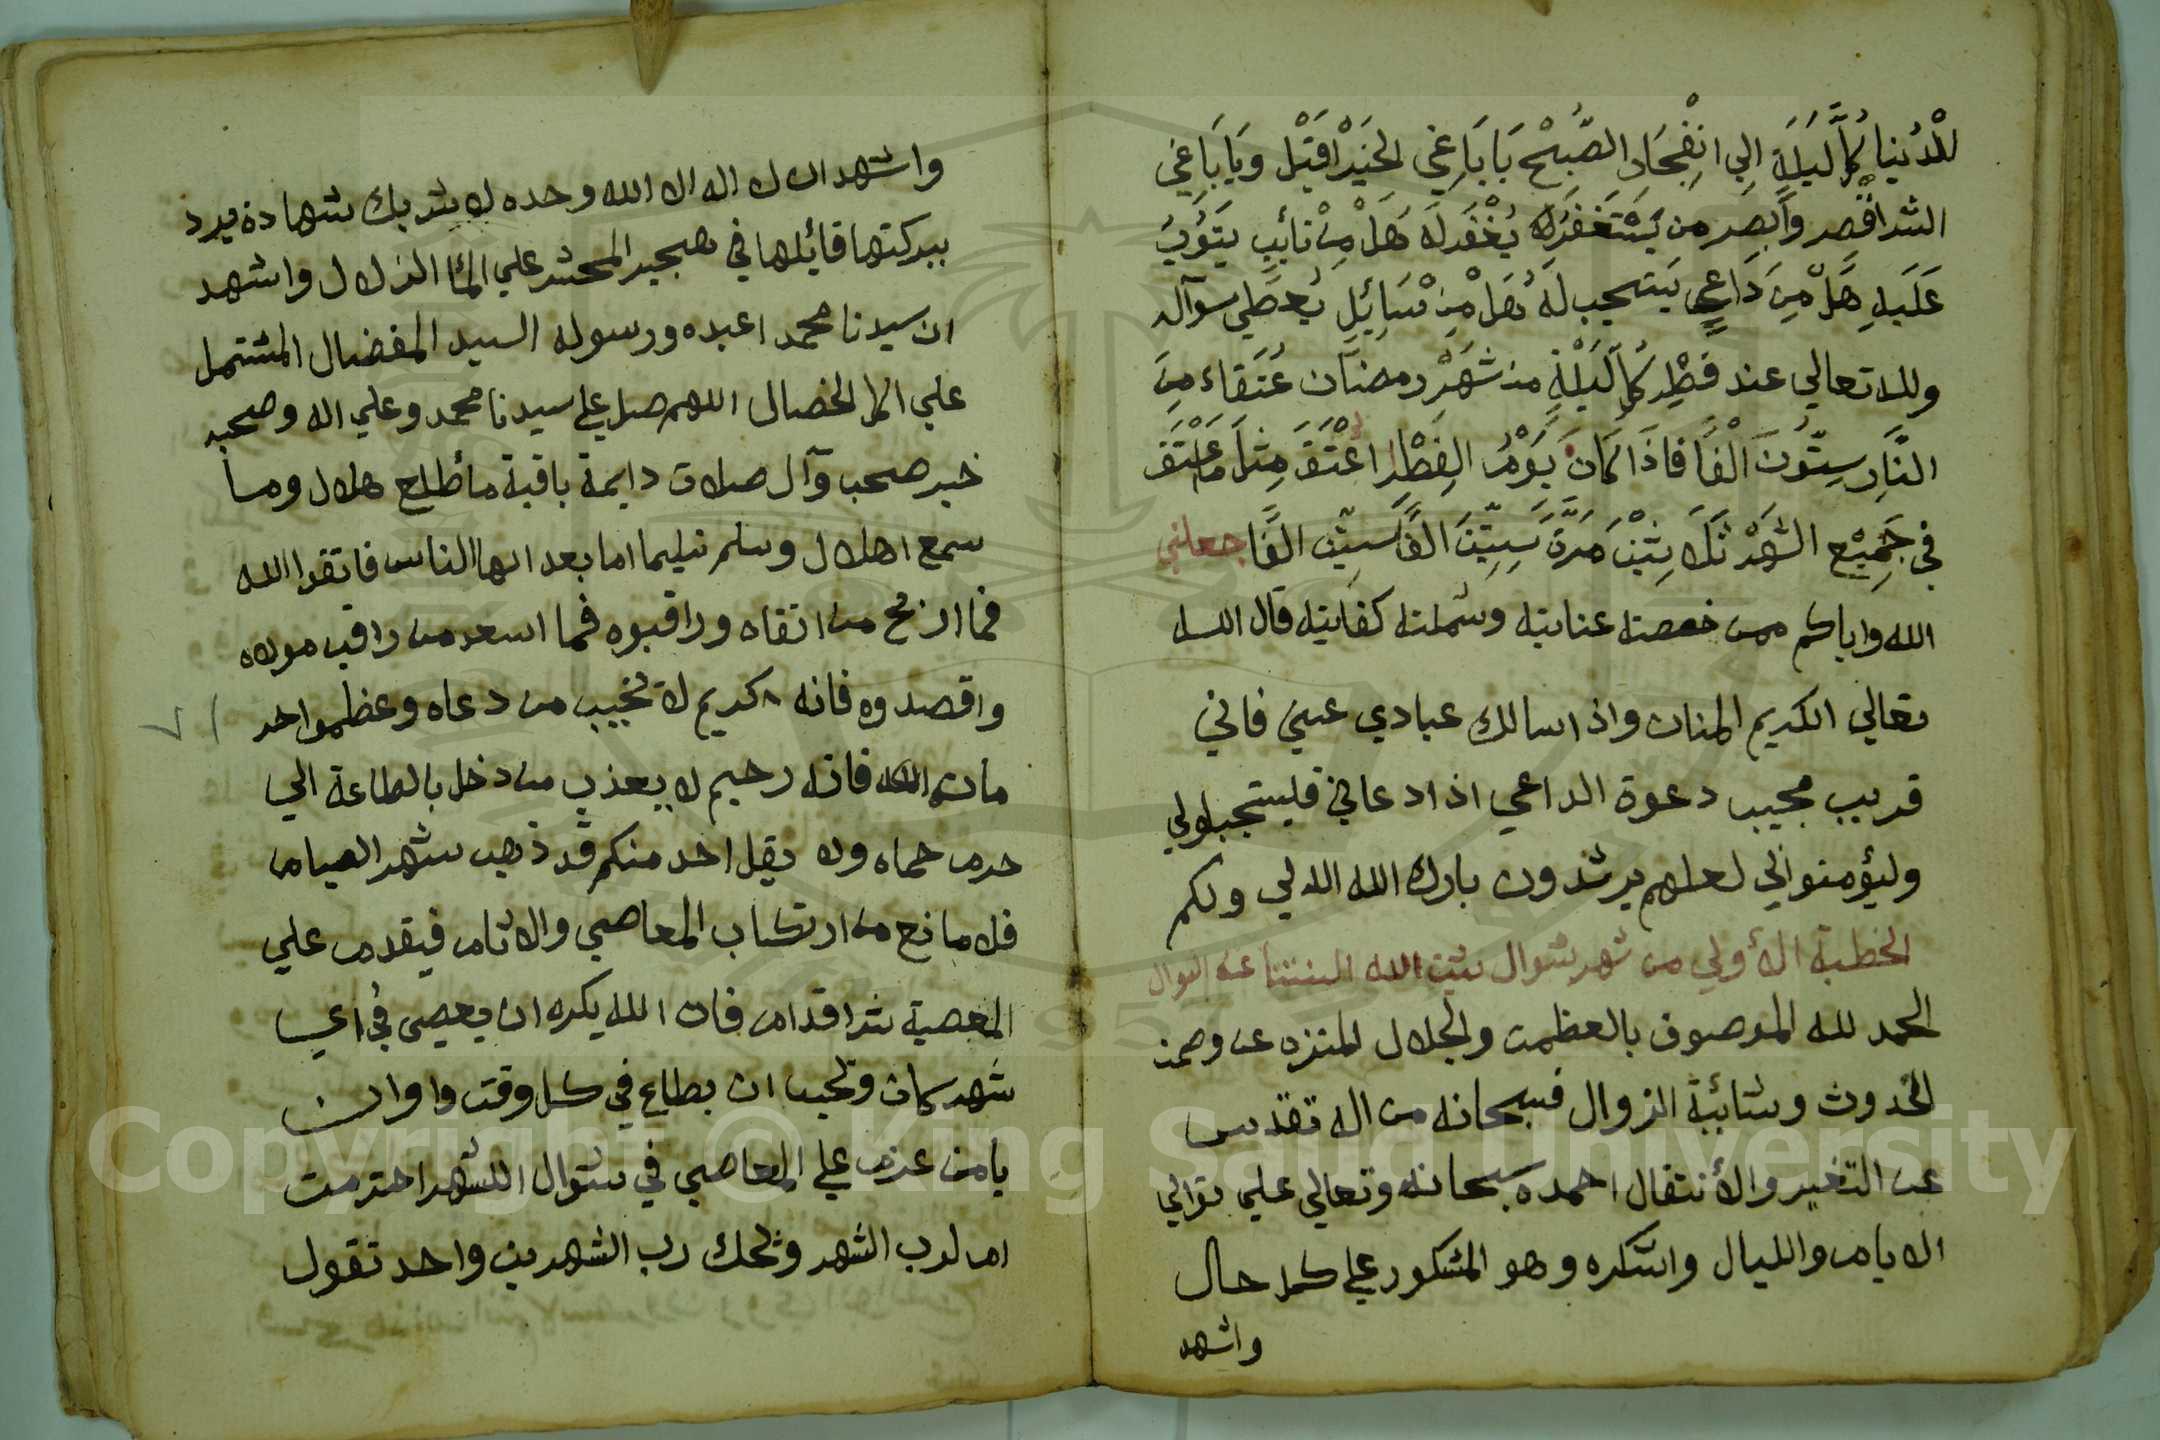 للدُنيا كُلَّ لَيلَةِ اِلي انفِجَار الصُّبْح يَا بَاغِي الخَيْر اقْبَل وَيَا بَاغِي
الشر اقْصِر وَابصِر مِن يَسْتَغفَر لهُ يُغْفَر لَه هَل مِنْ تائب يَتَوُبُ
عَلَيهِ هَلْ مِنَ دَاعِيٍ يَستجيب لَهُ هَلْ مْنِ سَايِئِلِ يُعطَي سوآله
ولله تعالي عند فِطْرِ كُلِ لَيْلَةٍ من شَهْر رمضَان عُتَقاء مِنَ
النَّارِ سِتُونَ اَلْفًا فاذَا كَانَ يَوْمُ الفِطْرِ اعْتَقَ مِثلَ مَا عَتَقَ
في جَمِيْعِ الشَهْر ثَلَاثِيْنَ مَرَّةً سَتِّيْنَ الفًا سِتِّين الفًا جعلني
الله واياكم ممن خصته عنايته وشملته كفايته قال الله
تعالي الكريم المنان واذا سالك عبادي عني فاني
قريب مجيب دعوة الداعي اذا دعاني فليستجبولي
وليؤمنوا لي لعلهم يرشدون بارك الله الله لي ولكم
الخطبة الأولي من شهر شوال
الحمد لله الموصوف بالعظمت والجلال المنزه عن وصمة
الحدوث وشائبة الزوال فسبحانه من اله تقدس
عن التغير والأنتقال احمده سبحانه وتعالي علي توالي
الايام والليال واشكره وهو المشكور علي كل حال
واشهد
واشهد ان لا اله الا الله وحده لا شريك شهادة يرد
ببركتها قائلها في هجير المحشر علي الما الزلال واشهد
ان سيدنا محمدا عبده ورسوله السيد المفضال المشتمل
علي اكمل الخصال اللهم صل علي سيدنا محمد وعلي اله وصحبه
خير صحب وآل صلات دايمة باقية ما طلع هلال وما
سمع اهلال وسلم تسليما اما بعد ايها الناس فاتقوا الله
فما اربح من اتقاه وراقبوه فما اسعد من راقب مولاه
واقصدوه فانه كريم لا يخيب من دعاه وعظموا حر
مات الله فانه رحيم لا يعذب من دخل بالطاعة الي
حرم حماه ولا يقل احد منكم قد ذهب شهر الصيام
فلا مانع من ارتكاب المعاصي والاثام فيقدم علي
المعصية شر اقدام فان الله يكره ان يعصي في اي
شهر كان ويحب ان يطاع في كل وقت واوان
يا من عزم علي المعاصي في شوال اللشهر احترمت
ام لرب الشهر ويحك رب الشهرين واحد تقول